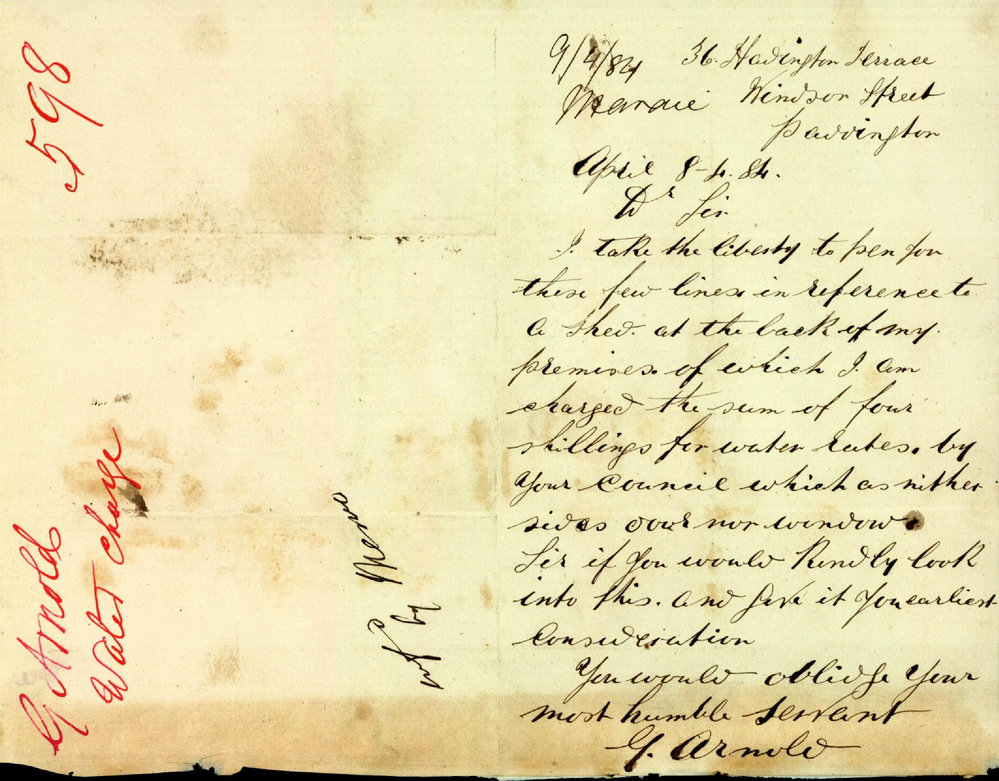 598
G Arnold
Water Charge
by Memo
9/4/84
36. Hadington Terrace
Windsor Street
Paddington
April 8-4. 84.
Dr Sir
I. take the liberty to pen you
these few lines. in reference to
a shed. at the back of my.
premises. of which I. am
charged the sum of four
shillings for water rates. by
Your Council which as nither
sides doors nor window.
Sir if You would Kindly look
into this. and give it You earliest
Consideration
You would oblidge Your
most humble servant
G. Arnold